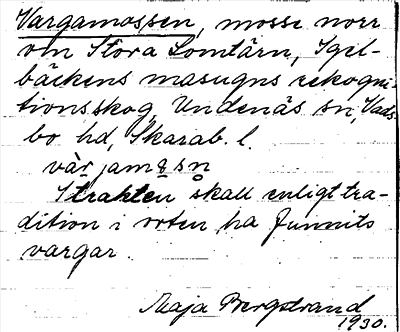 Vargamossen, mosse norr
om Stora Lomtärn, Igel-
bäckens masugns rekogni-
tionsskog, Undenäs sn, Vads-
bo hd, Skarab. l.
vàr jam o s n
I trakten skall enligt tra-
dition i orten ha funnits
vargar.
Maja Bergstrand
1930.